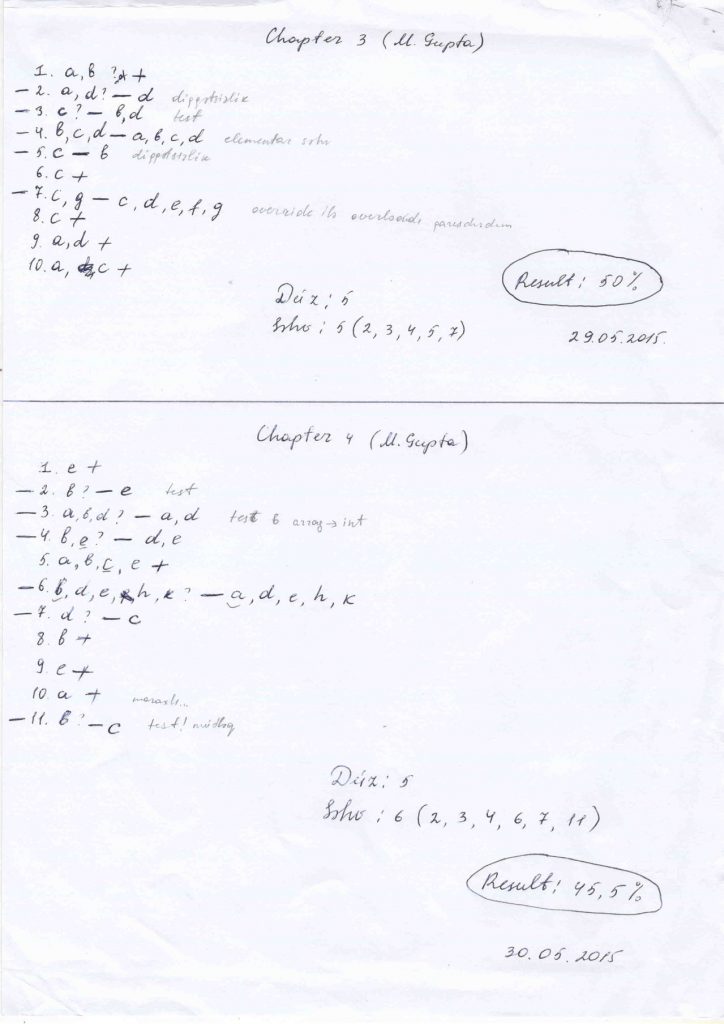 Chapter 3 (M. Gupta)
1. a, b ? +
– 2. a, d? – d diqqətsizlik
– 3. c? – b, d test
– 4. b, c, d – a, b, c, d elementar səhv
– 5. c – b diqqətsizlik
6. c +
– 7. c, g – c, d, e, f, g override ilə overloadı
8. c +
9. a, d +
10. a, c +
Düz: 5
Səhv: 5 (2, 3, 4, 5, 7)
Result: 50%
29.05.2015.
Chapter 4 (M. Gupta)
1. e +
– 2. b? – e test
– 3. a, b, d? – a, d test 6 array → int
– 4. b, e? – d, e
5. a, b, c, e +
– 6. b, d, e, h, k? – a, d, e, h, k
– 7. d? – c
8. b +
9. e +
10. a + maraqlı...
– 11. b? – c test!
Düz: 5
Səhv: 6 (2, 3, 4, 6, 7, 11)
Result: 45,5%
30.05.2015